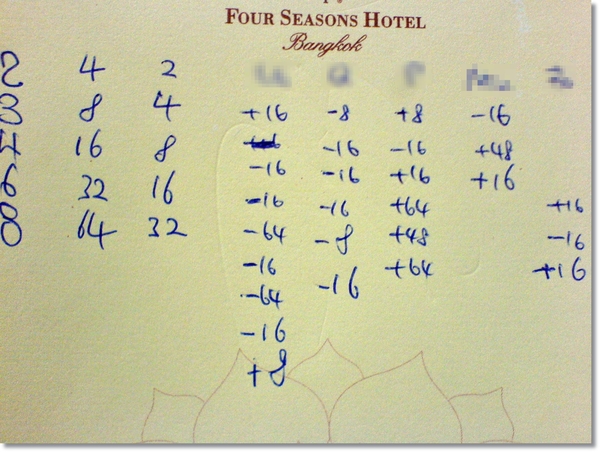 FOUR SEASONS HOTEL
Bangkok
2 4 2
3 8 4 +16 -8 +8 -16
4 16 8 -16 -16 +48
-16 -16 +16 +16
6 32 16 -16 -16 +64 +16
8 64 32 -64 -8 +48 -16
-16 -16 +64 +16
-64
-16
+8